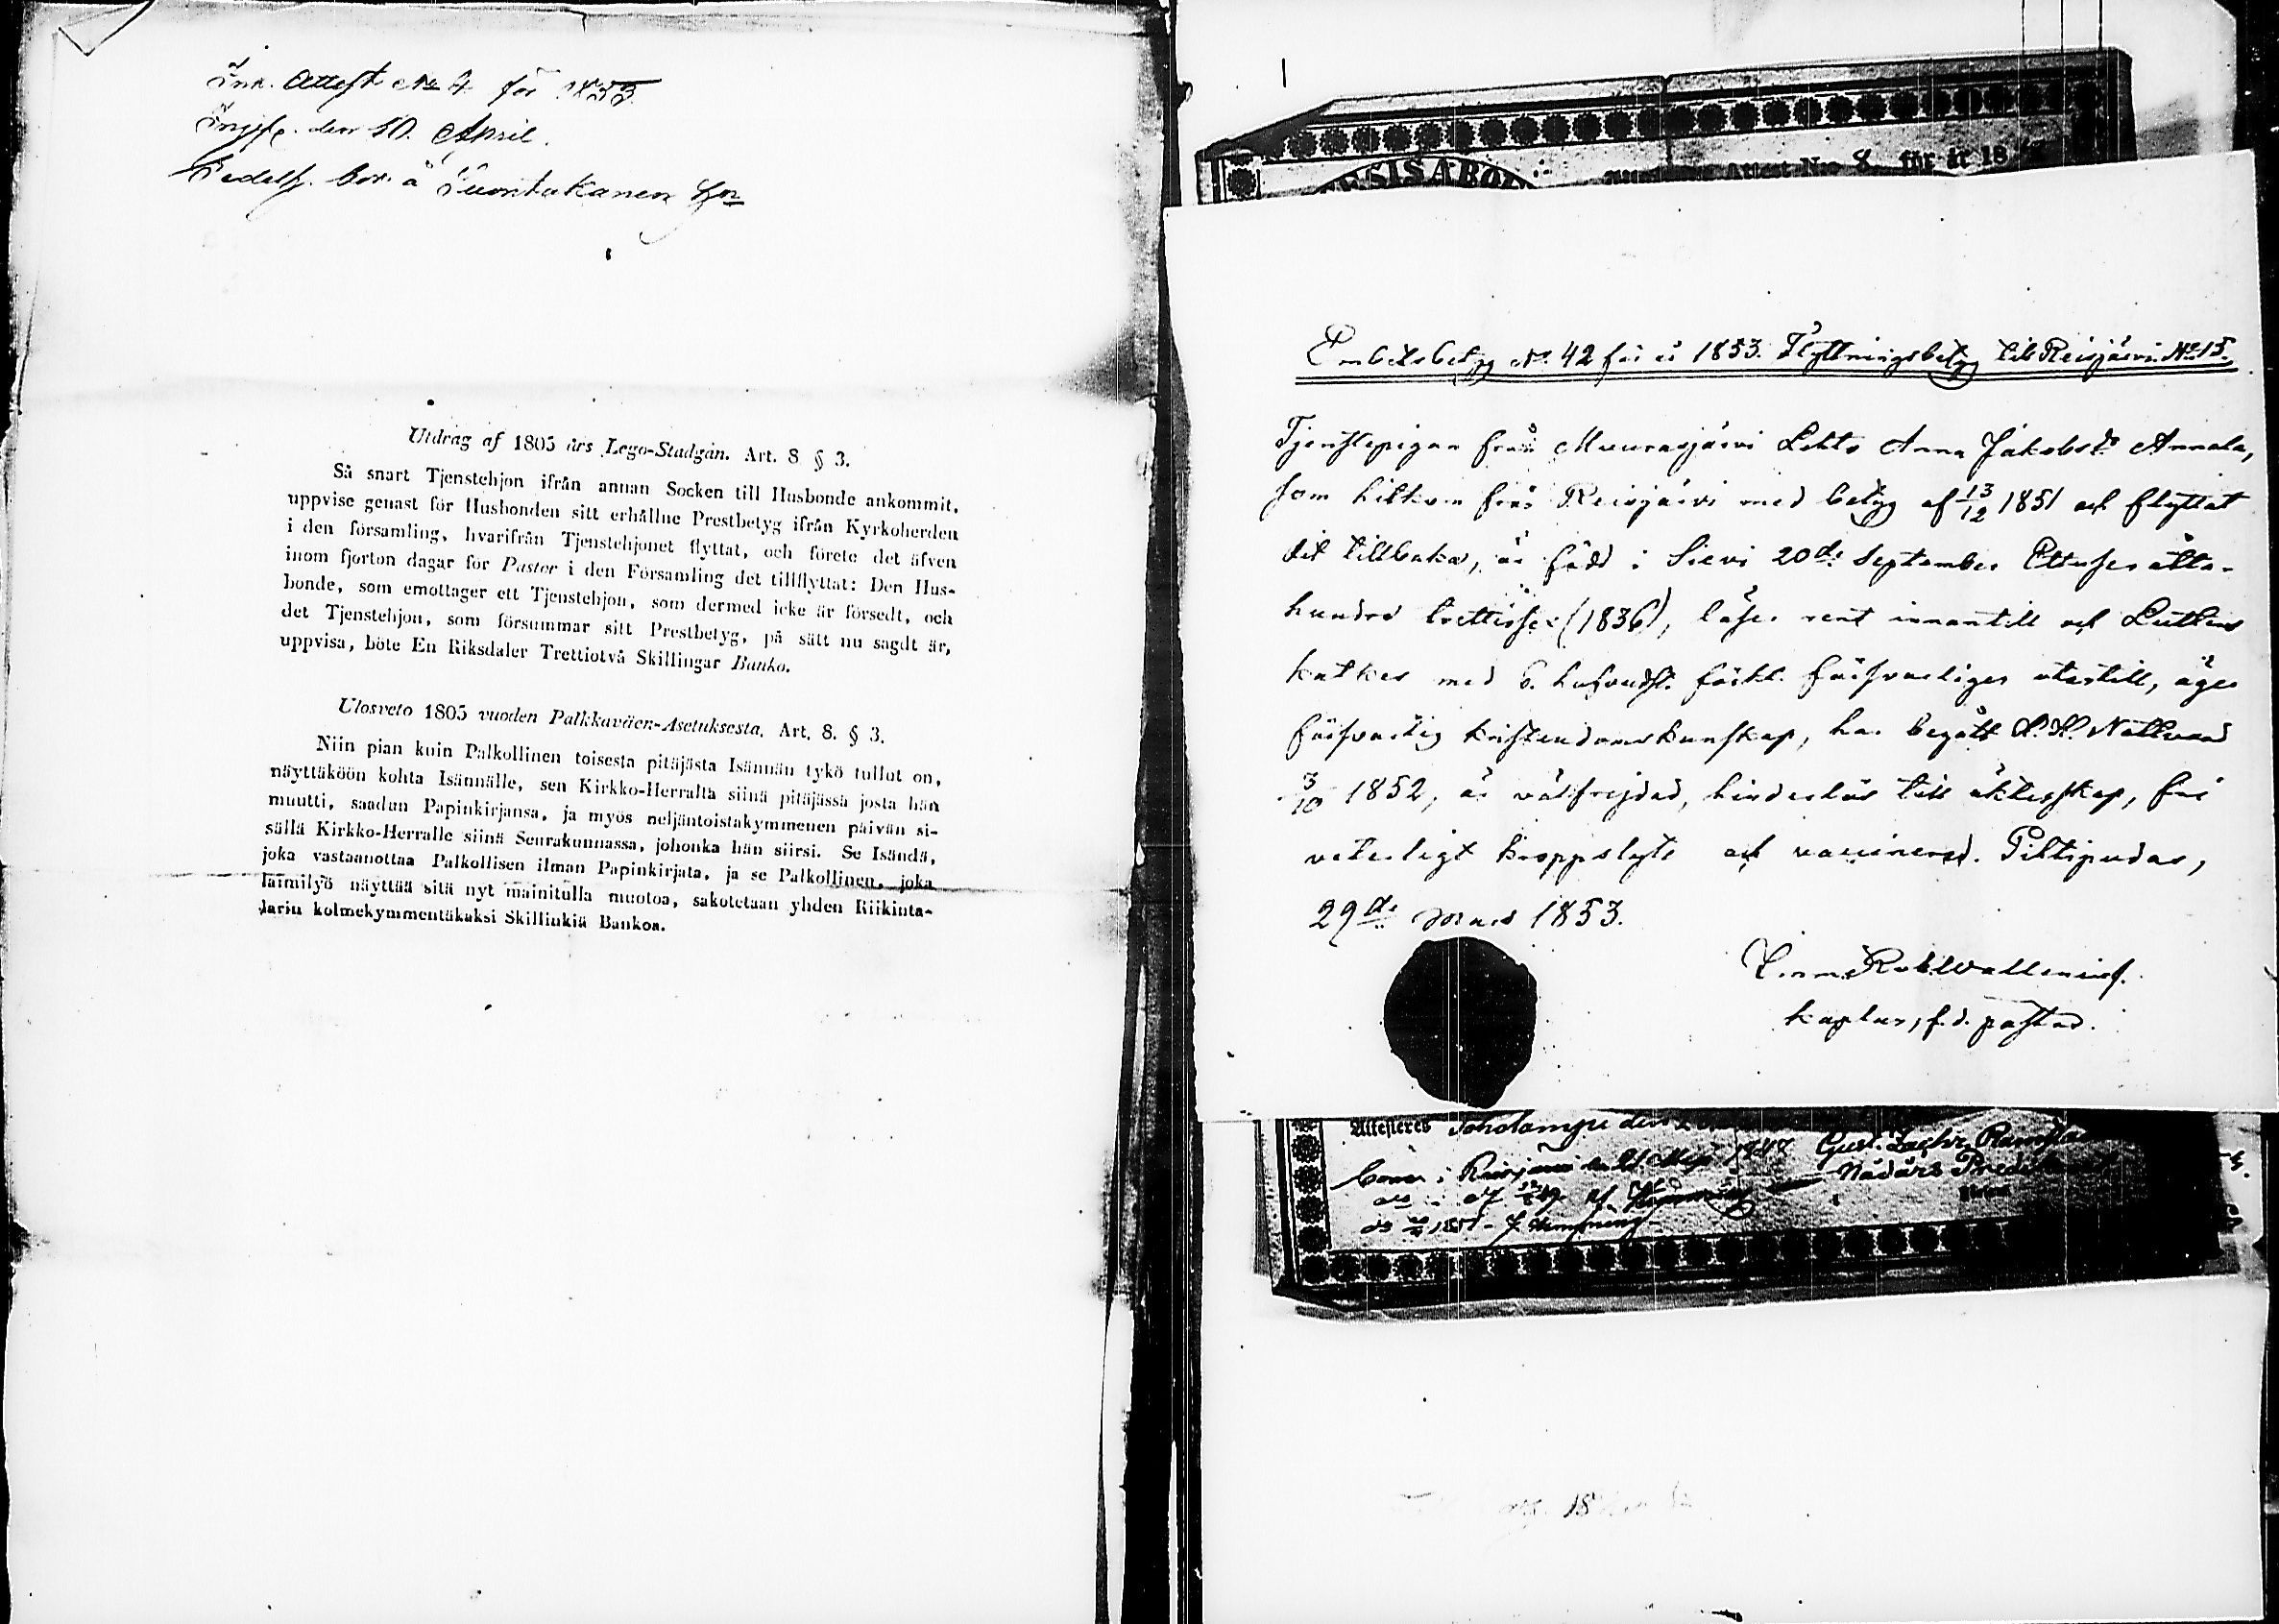 Ink. Attest No 4 för 1853.
den 10. April.
bor. å
Utdrag af 1805 års Lego-Stadgan. Art. 8 § 3.
Så snart Tjenstehjon ifrån annan Socken till Husbonde ankommit,
uppvise genast för Husbonden sitt erhållne Prestbetyg ifrån Kyrkoherden
i den församling, hvarifrån Tjenstehjonet flyttat, och förete det äfven
inom fjorton dagar för Pastor i den Församling det tillflyttat: Den Hus-
bonde, som emottager ett Tjenstehjon, som dermed icke är försedt, och
det Tjenstehjon, som försummar sitt Prestbetyg, på sätt nu sagdt är,
uppvisa, böte En Riksdaler Trettiotvå Skillingar Banko.
Ulosveto 1805 vuoden Palkkaväen-Asetuksesta. Art. 8. § 3.
Niin pian kuin Palkollinen toisesta pitäjästä Isännän tykö tullut on,
näyttäköön kohta Isännälle, sen Kirkko-Herralta siinä pitäjässä josta hän
muutti, saadun Papinkirjansa, ja myös neljäntoistakymmenen päivän si-
sällä Kirkko-Herralle siinä Seurakunnassa, johonka hän siirsi. Se Isändä,
joka vastaanottaa Palkollisen ilman Papinkirjata, ja se Palkollinen, joka
laimilyö näyttää sitä nyt mainitulla muotoa, sakotetaan yhden Riikinta-
larin kolmekymmentäkaksi Skillinkiä Bankoa.
Attest N:o 8 för år 18
Embetsbetyg No. 42 för år 1853. Flyttningsbetyg till Reisjärvi No 15.
Tjenstepigan från Muurasjärvi Lehto Anna Jakobsdr Annala,
som hitkom från Reisjärvi med betyg af 13/12 1851 och flyttat
dit tillbaka, är född i Sievi 20de September Ettusen åtta-
hundra trettisex (1836), läser rent innantill och Luthers
katkes med 6. hufvudst. förkl. försvarliger utantill, äger
försvarlig kristendomskunskap, har begått H. H. Nattvard
3/10 1852, är välfrejdad, hinderlös till äktenskap, fri
veterligt kroppslyte och vaccinerad. Pihtipudas,
29de Mars 1853.
Wallenius.
kaplan, f.d. pastor.
Attesteres Toholampi den
i Reisjärvi 1847 Gust. Zachr.
Nådårs Predikant
1851
18